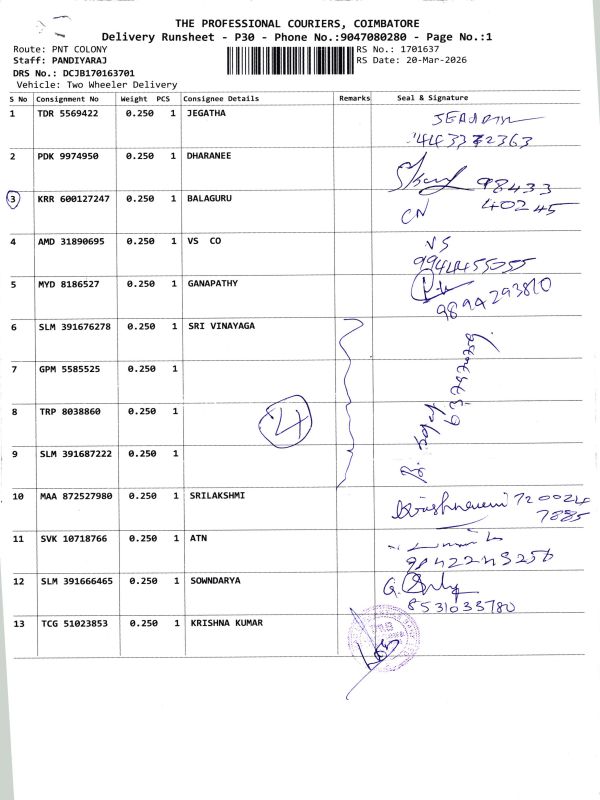 THE PROFESSIONAL COURIERS, COIMBATORE
Delivery Runsheet - P30 - Phone No.:9047080280 - Page No.:1
Route: PNT COLONY RS No.: 1701637
Staff: PANDIYARAJ RS Date: 20-Mar-2026
DRS No.: DCJB170163701
Vehicle: Two Wheeler Delivery
S No Consignment No Weight PCS Consignee Details Remarks Seal & Signature
1 TDR 5569422 0.250 1 JEGATHA
2 PDK 9974950 0.250 1 DHARANEE
98433
3 KRR 600127247 0.250 1 BALAGURU
CN 40245
4 AMD 31890695 0.250 1 VS CO VS
9944455055
5 MYD 8186527 0.250 1 GANAPATHY
9894293810
6 SLM 391676278 0.250 1 SRI VINAYAGA
7 GPM 5585525 0.250 1
8 TRP 8038860 0.250 1 4
9 SLM 391687222 0.250 1
10 MAA 872527980 0.250 1 SRILAKSHMI Krishnaveni 720024
7885
11 SVK 10718766 0.250 1 ATN
12 SLM 391666465 0.250 1 SOWNDARYA G.
8531033780
13 TCG 51023853 0.250 1 KRISHNA KUMAR